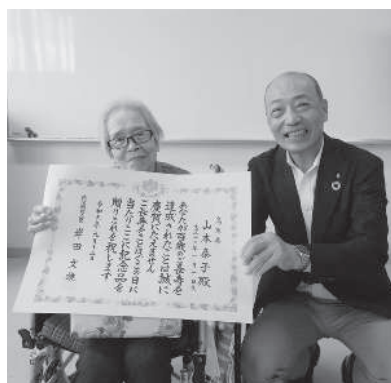 山本
殿
あなたが百歳のご長寿を
達成されたことは誠に
慶賀にたえません
ご長寿をことほぐこの日に
当たりここに記念品を
贈りこれを祝します
内閣総理大臣 岸田文雄